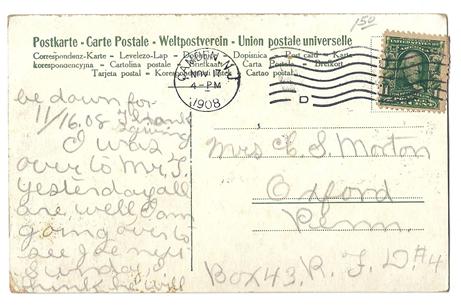 150
Postkarte - Carte Postale - Weltpostverein - Union postale universelle
Correspondenz-Karte - Levelezo-Lap - Dopisnica - Post card - Karta
korespondencyjna - Cartolina postale - Brielkaart - Carta Postala - Brefkort
Tarjeta postal - Cartao postal
CAMDEN, N.J.
NOV 17
4-PM
1908
D
be down for
11/16.08 Thanks
giving
I was
over to Mr. T.
yesterday all
are well I am
going over to
see Joe next
Sunday, I
think he will
Mrs C. S. Morton
Oxford
Penn.
Box 43, R. F. D. #4